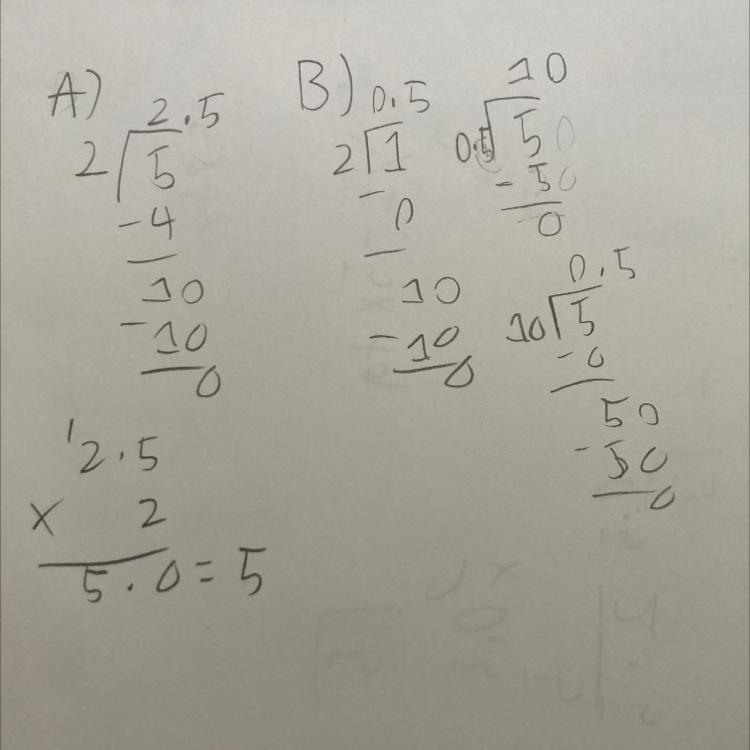 A)
2.5
2 5
-4
10
-10
0
2.5
1
x 2
5.0=5
B)
0.5
2 1
-0
10
-10
0
10
0.5 50
-50
0
0.5
10 5
-0
50
-50
0